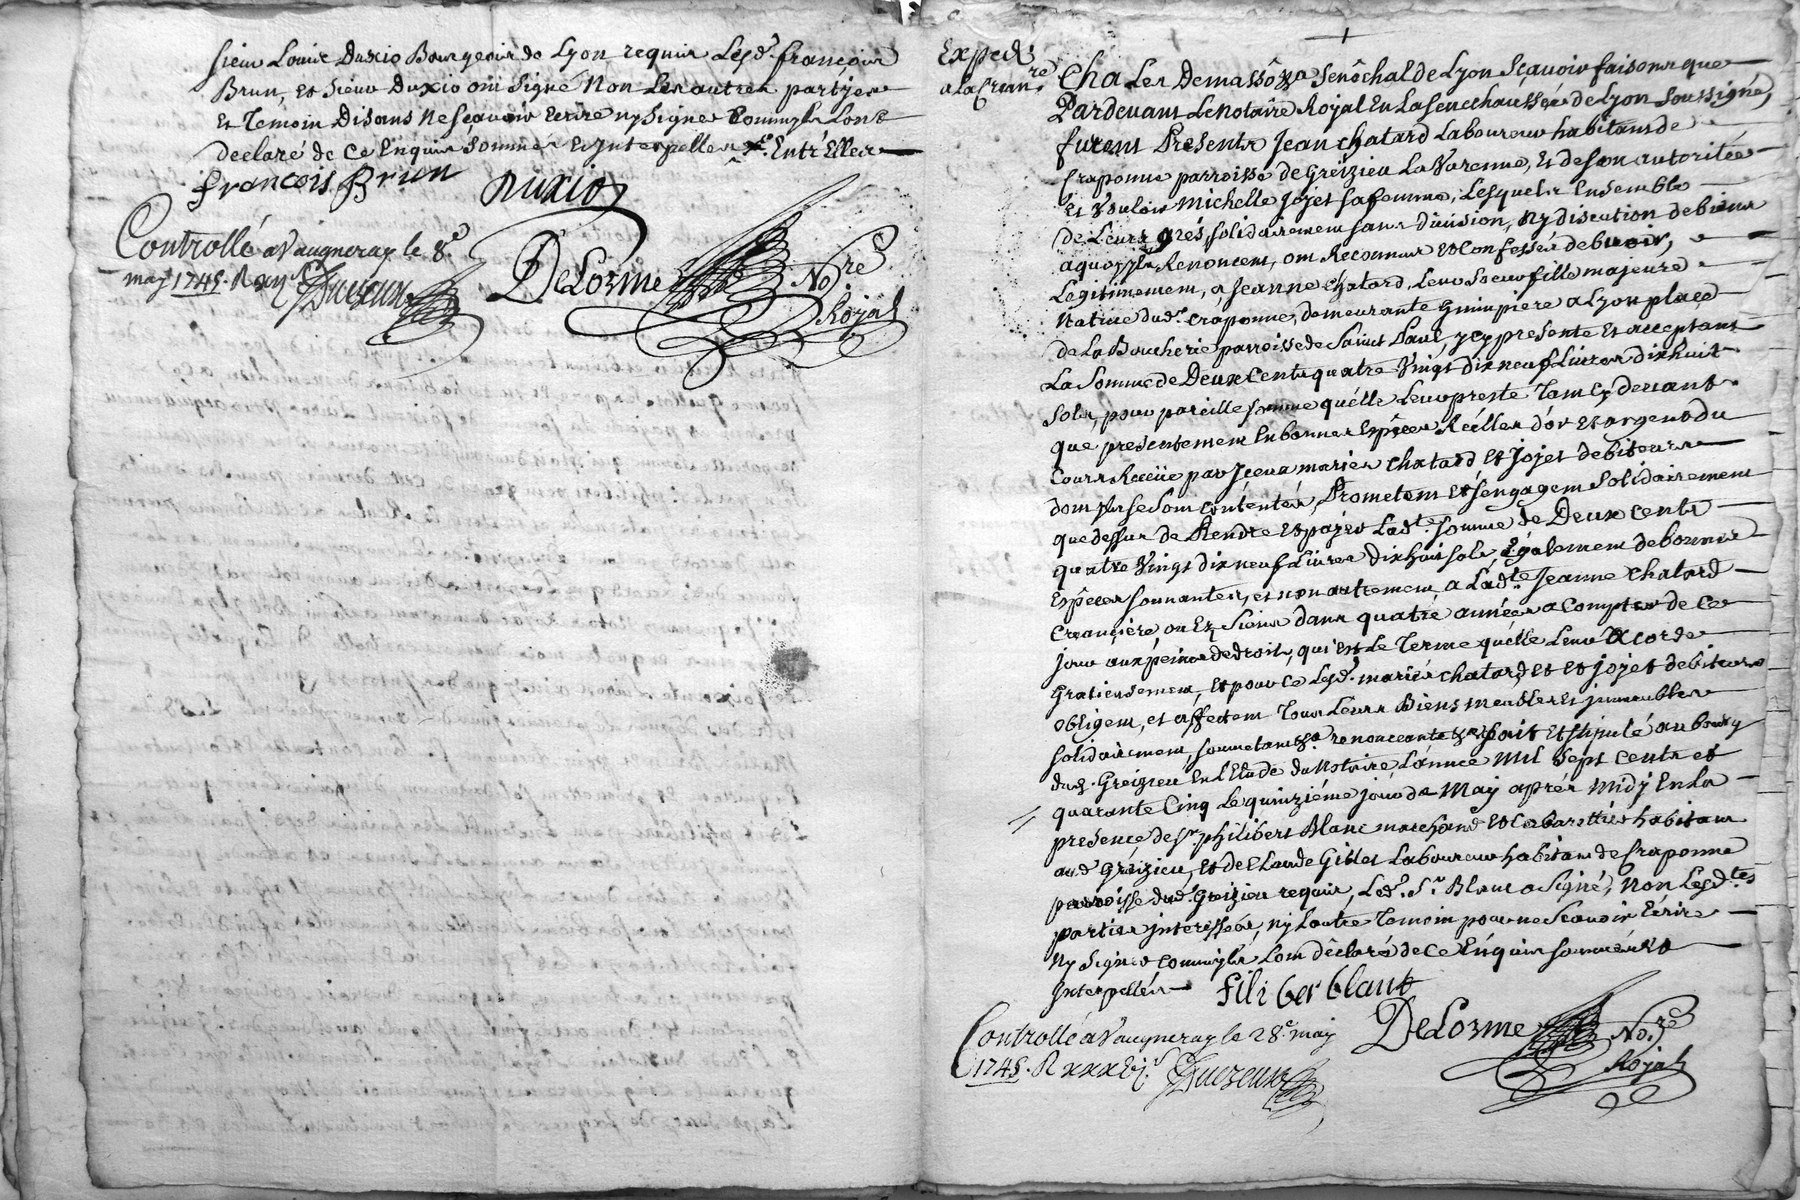 sieur Louis Duxio Bourgeois de Lyon requis Lesd. françois
Brun, et sieur Duxio ont signé Non Les autres partyes
et Temoin Disans ne sçavoir écrire ny signer Comm'yls l'ont
declaré de ce Enquis sommés et interpellés Entr'Elles
françois Brun Duxio
Controllé a Vaugneray le 8e
may 1745. R DeLorme Nore
Royal
Exped.
a la Crean.re
Cha Les De massô Senôchal de Lyon Sçavoir faisons que
Pardevant Le Notaire Royal En La senechaussée de Lyon soussigné,
furent Presents Jean Chatard Laboureur habitant de
Craponne parroisse de Greizieu La Varenne, Et de son autoritée
Et Vouloir Michelle Jojet sa femme, Lesquels Ensemble
de Leurs grés, solidairement sans division, Ny discution de biens
a quoy yls Renoncent, ont Reconnus et Confessés debvoir,
Legitimement, a Jeanne Chatard, Leur soeur fille majeure
Native dud. Craponne, demeurante Guimpiere a Lyon place
de La Boucherie parroisse de Saint Paul, ycy presente et acceptant
La Somme de Deux Cents quatre Vingt dix neuf Livres dix huit
sols, pour pareille somme qu'elle Leur preste Tant Cy devant
que presentement En bonnes Espêces Réelles d'or et argent du
Cours Reçüe par Jceux mariés Chatard et Jojet debiteurs
dont yls se sont contentés, Prometent et s'engagent solidairement
que dessus de Rendre et payer Lad.te somme de Deux Cents
quatre Vingt dix neuf Livres dix huit sols Egalement de bonnes
Espêces sonnantes, et non autrement, a Lad.te Jeanne Chatard
Creançiére, ou Ez siens dans quatre années a Compter de Ce
jour aux peines de droit, qui est Le Terme qu'elle Leur accorde
Gratieusement, et pour ce Lesd. mariés Chatard et et jojet debiteurs
obligent, et affectent Tous Leurs Biens meubles et jmmeubles
solidairement, soumetants &a renonceants &a fait et stipulé au bourg
dud. Greizieu En l'Etude du Notaire, L'année Mil sept Cents et
quarante Cinq Le quinziéme jour de May aprés midy En La
presence de sr. philibert Blanc marchand et Cabarettier habitant
aud. Greizieu, et de Claude Gillet Laboureur habitant de Craponne
parroisse dud. Greizieu requis, Led. Sr. Blanc a signé, non Lesd.tes
parties interessées, ny L'autre Temoin pour ne Sçavoir Ecrire
Ny signer comm'yls L'ont déclarés de ce Enquis sommés et
interpellés
filiber blanc
Controllé a Vaugneray le 28e. may
1745. R DeLorme No.re
Royal